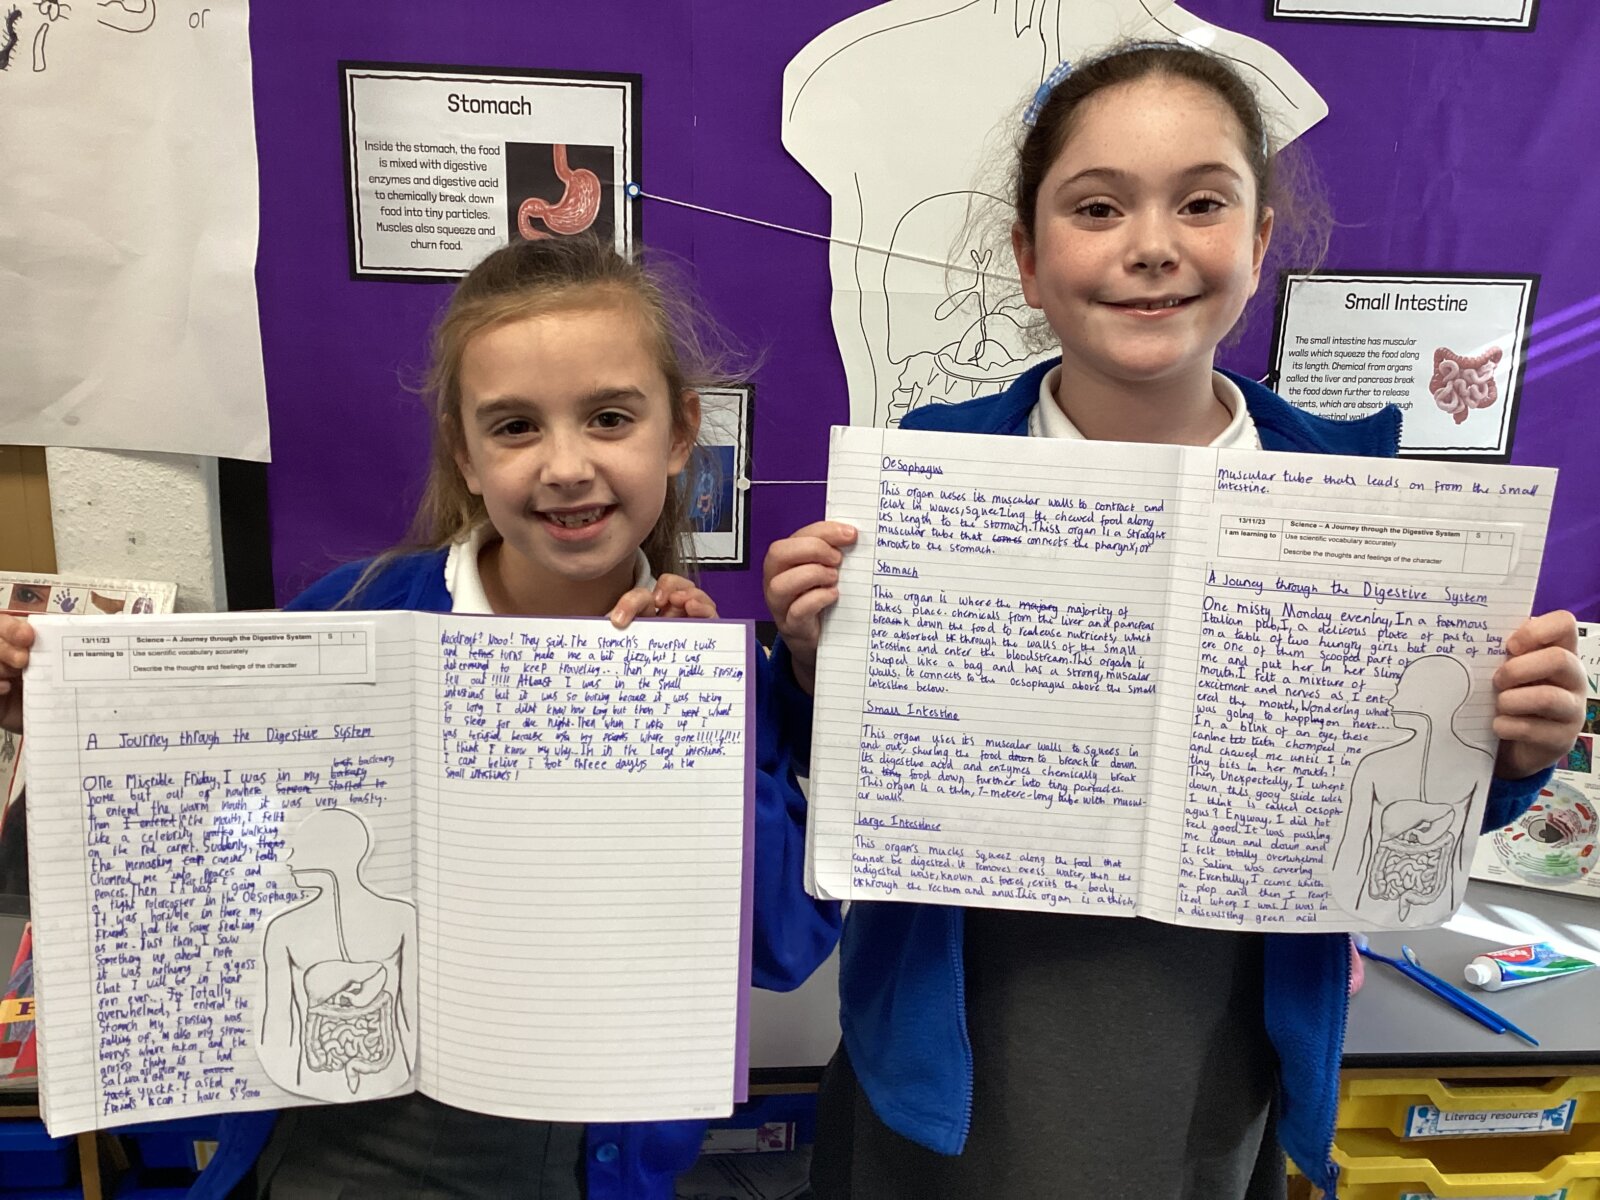 or
Stomach
Inside the stomach, the food
is mixed with digestive
enzymes and digestive acid
to chemically break down
food into tiny particles.
Muscles also squeeze and
churn food.
Small Intestine
The small intestine has muscular
walls which squeeze the food along
its length. Chemical from organs
called the liver and pancreas break
the food down further to release
nutrients, which are absorb through
intestinal wall
13/11/23 Science – A Journey through the Digestive System S I
I am learning to Use scientific vocabulary accurately
Describe the thoughts and feelings of the character
A Journey through the Digestive System
One Mistible Friday, I was in my backary
home but out of nowhere
I entend the warm mouth it was very toasty.
Then I the mouth, I felt
Like a celebrity walking
on the red carpet. Suddenly,
the menashing canine teeth
Chomped me into peaces and
peaces. Then I felt like I was going on
a tight rolarcoster in the Oesophagus.
It was horible in there my
friends had the same feeling
as me. Just then, I saw
Something up ahead nope
it was nothing I g'gess
that I will be in hear
for ever... Totally
overwhelmed, I entered the
Stomach my frosting was
falling of, also my straw-
berrys where taken and the
grosest thing is I had
Saliva on me
yuckk. I askd my
friends can I have Some
deodront? Nooo! They said. The Stomach's Powerful twits
and turns make me a bit dizzy, but I was
determind to keep traveling... Then my middle frosting
fell out!!!!! Atleast I was in the Small
intestines but it was so boring because it was taking
so long I didnt know how long but then I went
to sleep for the night. Then when I woke up I
was terifid because my friends where gone!!!!!!!!!!
I think I know my why... Im in the Large intestines.
I cant belive I took threee dayls in the
Small intestines!
Oesophagus
This organ ueses its muscular walls to contract and
relax in waves, squeezing the chewed food along
its length to the stomach. Thiss organ is a straight
muscular tube that comes connects the pharynx, or
throut, to the stomach.
Stomach
This organ is where the majory majority of
takes place. chemicals from the liver and pancreas
break down the food to realease nutrients, which
are absorbed through the walls of the Small
Intestine and enter the bloodstream. This organ is
Shaped like a bag and has a strong, muscular
walls. it connects to the Oesophagus above the small
intestine below.
Small Intestine
This organ uses its muscular walls to Squees in
and out, the food down to break it down.
Its digestive acid and enzymes chemically break
the food down further into tiny particles.
This organ is a thin, 7-metere-long tube with muscul-
ar walls.
Large Intestince
This organ's mucles Squeez along the food that
cannot be digested. it removes exess water, then the
udigested waist, known as faeses, exits the body
through the rectum and anus. This organ is a thick,
muscular tube thats leads on from the small
intestine.
13/11/23 Science – A Journey through the Digestive System S I
I am learning to Use scientific vocabulary accurately
Describe the thoughts and feelings of the character
A Jouney through the Digestive System
One misty Monday eveniny, In a foumous
Italian pub, I, a delicous plate of pasta lay
on a table of two hungry girls but out of now
ere one of them scooped part of
me and put her in her Slimy
mouth. I felt a mixture of
excitment and nerves as I ent-
ered the mouth, wondering what
was going to happing on next...
In a blink of an eye, these
canine teeth chomped me
and chawed me until I in
tiny bits in her mouth!
Then, Unexpectedly, I whent
down, this gooy slide wich
I think is called Oesoph-
agus? Enyway, I did not
feel good. It was pushing
me down and down and
I felt totally overwhelmd
as Saliva was covering
me. Eventally, I came whith
a plop and then I rearl-
ized where I was. I was in
a discusting green acid
Literacy resources